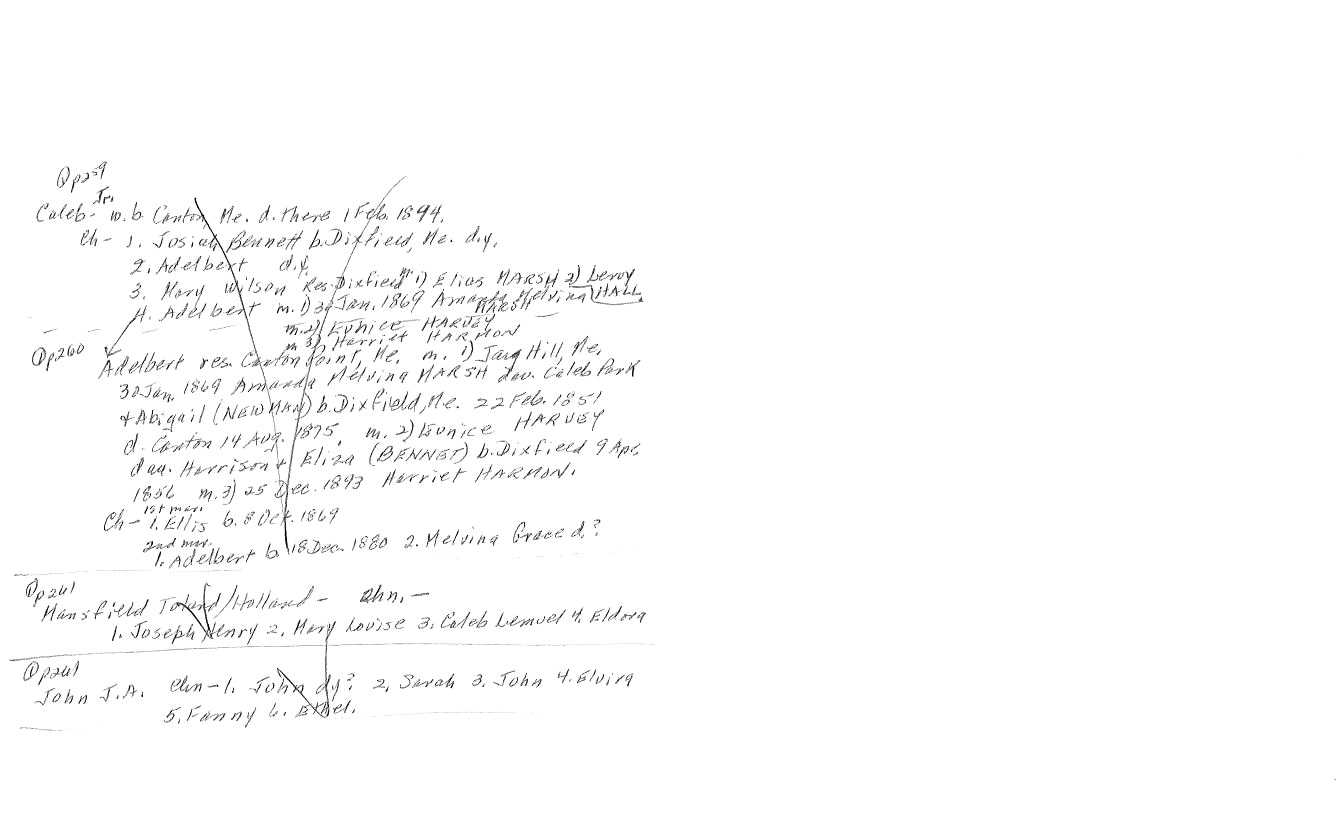 p259
Caleb- Jr. w. b. Canton, Me. d. there 1 Feb. 1894.
Ch- 1. Josiah Bennett b. Dixfield, Me. d.y.
2. Adelbert d.y.
3. Mary Wilson Res. Dixfield m 1) Elias MARSH 2) Leroy HALL
4. Adelbert m. 1) 30 Jan. 1869 Amanda Melvina MARSH
m. 2) Eunice HARVEY
m 3) Harriet HARMON
p260
Adelbert res. Canton Point, Me. m. 1) Jay Hill, Me.
30 Jan. 1869 Amanda Melvina MARSH dau. Caleb Park
+ Abigail (NEWMAN) b. Dixfield, Me. 22 Feb. 1851
d. Canton 14 Aug. 1875, m. 2) Eunice HARVEY
dau. Harrison + Eliza (BENNET) b. Dixfield 9 Apr.
1856 m. 3) 25 Dec. 1893 Harriet HARMON.
1st mar.
Ch- 1. Ellis b. 8 Oct. 1869
2nd mar.
1. Adelbert b. 18 Dec. 1880 2. Melvina Grace d.?
p261
Mansfield Toland/Holland - Chn. -
1. Joseph Henry 2. Mary Louise 3. Caleb Lemuel 4. Eldora
p261
John J.A. Chn-1. John dy? 2. Sarah 3. John 4. Elvira
5. Fanny 6. Ethel.